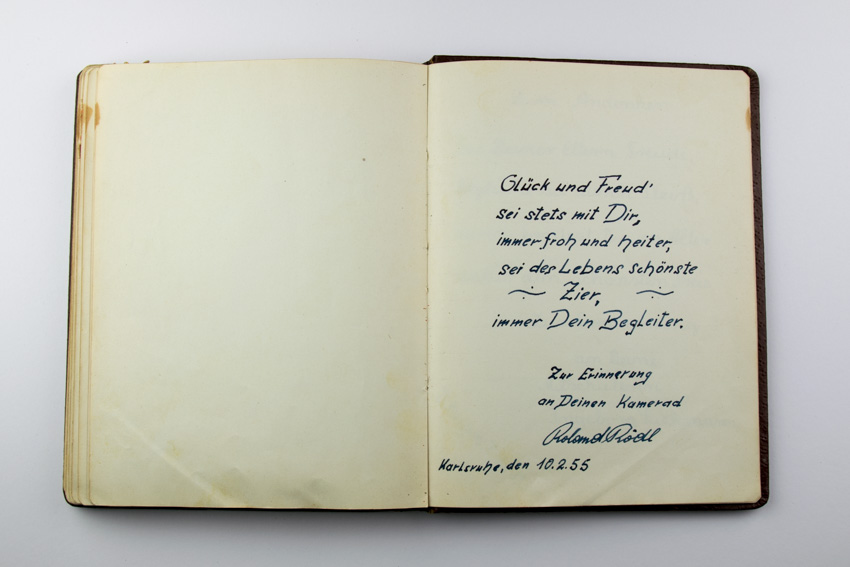 Glück und Freud'
sei stets mit Dir,
immer froh und heiter,
sei des Lebens schönste
Zier,
immer Dein Begleiter.
Zur Erinnerung
an Deinen Kamerad
Roland Rödl
Karlsruhe, den 10.2.55